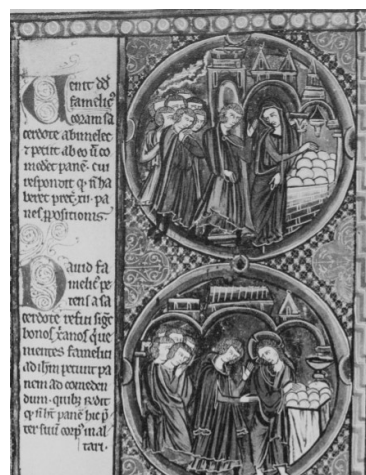 Uenit dd
famelicꝰ
coram sa
cerdote abimelec
⁊ petit ab eo ut̃ co
medet panē. cui
respondit q̃ ñ ha
beret pret̃ .xii. pa
nes ꝓpositionis.
Dauid fa
melicꝰ pe
tens a sa
cerdote refici sig̃t
bonos x̃anos
nientes famelici
ad ih̃m petunt pa
nem ad comeden
dum. quibꝫ r̃dit
q̃ ñ h̃t panē hic p̃
ter suũ corpꝰ in al
tari.